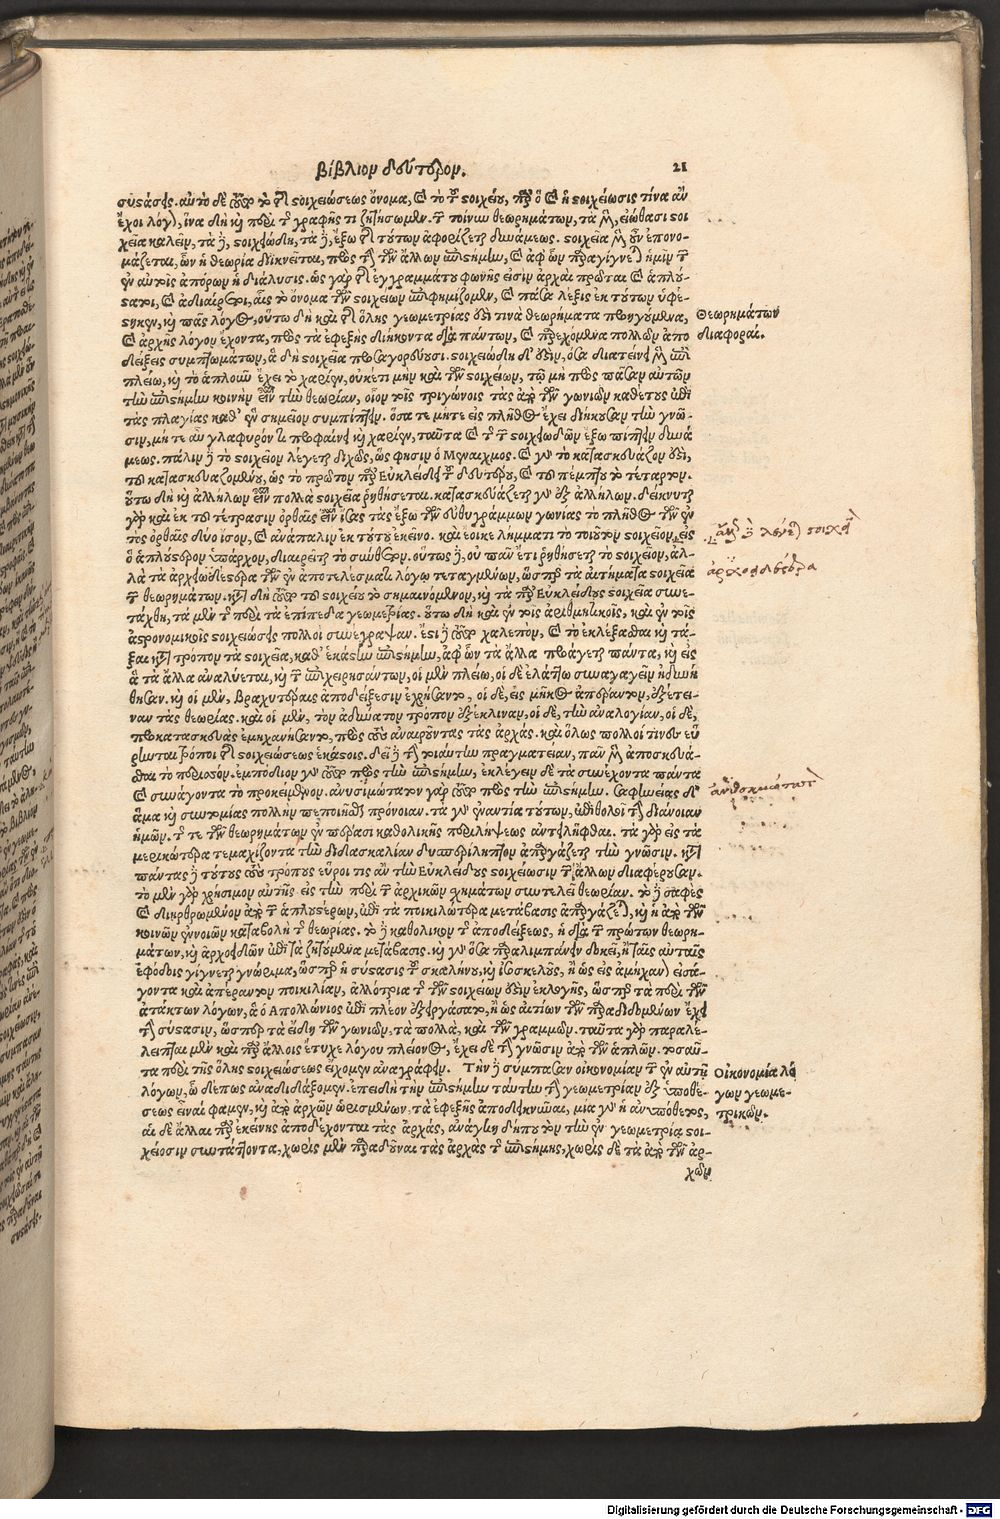 βίβλιον δεύτερον.
21
συστάσης. αὐτὸ δὲ ὥσπερ τὸ τῆς στοιχειώσεως ὄνομα, καὶ τὸ τοῦ στοιχείου, πρὸς ὃ καὶ ἡ στοιχείωσις τίνα ἂν
ἔχοι λόγον, ἵνα δὴ καὶ περὶ τῆς γραφῆς τι ζητήσωμεν. τῶν τοίνυν θεωρημάτων, τὰ μὲν, εἰώθασι στοι
χεῖα καλεῖν, τὰ δὲ, στοιχειώδη, τὰ δὲ, ἔξω τῆς τούτων ἀφορίζεται δυνάμεως. στοιχεῖα μὲν οὖν ἐπονο-
μάζεται, ὧν ἡ θεωρία διικνεῖται, πρὸς τὴν τῶν ἄλλων ἐπιστήμην, καὶ ἀφ' ὧν παραγίγνεται ἡμῖν τῶν
ἐν αὐτοῖς ἀπόρων ἡ διάλυσις. ὡς γὰρ τῆς ἐγγραμμάτου φωνῆς εἰσιν ἀρχαὶ πρῶται καὶ ἁπλού-
σταται, καὶ ἀδιαίρετοι, αἷς τὸ ὄνομα τῶν στοιχείων ἐπιφημίζομεν, καὶ πᾶσα λέξις ἐκ τούτων ὑφέ-
στηκεν, καὶ πᾶς λόγος, οὕτω δὴ καὶ τῆς ὅλης γεωμετρίας ἐστί τινα θεωρήματα προηγούμενα,
καὶ ἀρχῆς λόγον ἔχοντα, πρὸς τὰ ἐφεξῆς διήκοντα διὰ πάντων, καὶ παρεχόμενα πολλῶν ἀπο
δείξεις συμπτωμάτων, ἃ δὴ στοιχεῖα προσαγορεύουσι. στοιχειώδη δ' ἐστὶν, ὅσα διατείνει μὲν ἐπὶ
πλείω, καὶ τὸ ἁπλοῦν ἔχει τὸ χαρίεν, οὐκέτι μὴν καὶ τῶν στοιχείων, τῷ μὴ πρὸς πᾶσαν αὐτῶν
τὴν ἐπιστήμην κοινὴν εἶναι τὴν θεωρίαν, οἷον τοῖς τριγώνοις τὰς ἀπὸ τῶν γωνιῶν καθέτους ἐπὶ
τὰς πλαγίας καθ' ἓν σημεῖον συμπίπτειν. ὅσα τε μήτε εἰς πλῆθος ἔχει διήκουσαν τὴν γνῶ-
σιν, μή τε αὖ γλαφυρόν τι προφαίνει καὶ χαρίεν, ταῦτα καὶ τῆς τῶν στοιχειωδῶν ἔξω πίπτειν δυνά
μεως. πάλιν δὲ τὸ στοιχεῖον λέγεται διχῶς, ὥς φησιν ὁ Μέναιχμος. καὶ γὰρ τὸ κατασκευάζον ἐστὶ,
τοῦ κατασκευαζομένου, ὡς τὸ πρῶτον παρ' Εὐκλείδῃ τοῦ δευτέρου, καὶ τοῦ πέμπτου τὸ τέταρτον.
οὕτω δὴ καὶ ἀλλήλων εἶναι πολλὰ στοιχεῖα ῥηθήσεται. κατασκευάζεται γὰρ ἐξ ἀλλήλων. δείκνυται
γὰρ καὶ ἐκ τοῦ τέτρασιν ὀρθαῖς εἶναι ἴσας τὰς ἔξω τῶν εὐθυγράμμων γωνίας τὸ πλῆθος τῶν ἐν
τὸς ὀρθαῖς δυσὶ ἴσον, καὶ ἀνάπαλιν ἐκ τούτου ἐκεῖνο. καὶ ἔοικε λήμματι τὸ τοιοῦτον στοιχεῖον, εἰς
ὃ ἁπλούστερον ὑπάρχον, διαιρεῖται τὸ σύνθετον. οὕτως δὲ, οὐ πᾶν ἔτι ῥηθήσεται τὸ στοιχεῖον, ἀλ-
λὰ τὰ ἀρχοειδέστερα τῶν ἐν ἀποτελέσματος λόγῳ τεταγμένων, ὥσπερ τὰ αἰτήματα στοιχεῖα
τῶν θεωρημάτων. κατὰ δὴ ὥσπερ τοῦ στοιχείου τὸ σημαινόμενον, καὶ τὰ παρ' Εὐκλείδου στοιχεῖα συνε-
τάχθη, τὰ μὲν τῆς περὶ τὰ ἐπίπεδα γεωμετρίας. οὕτω δὴ καὶ ἐν τοῖς ἀριθμητικοῖς, καὶ ἐν τοῖς
ἀστρονομικοῖς στοιχειώσεις πολλοὶ συνέγραψαν. ἔστι δὲ ὥσπερ χαλεπὸν, καὶ τὸ ἐκλέξασθαι καὶ τά-
ξαι κατὰ τρόπον τὰ στοιχεῖα, καθ' ἑκάστην ἐπιστήμην, ἀφ' ὧν τὰ ἄλλα προάγεται πάντα, καὶ εἰς
ἃ τὰ ἄλλα ἀναλύεται, καὶ τῶν ἐπιχειρησάντων, οἱ μὲν πλείω, οἱ δὲ ἐλάττω συναγαγεῖν ἠδυνή
θησαν. καὶ οἱ μὲν, βραχυτέραις ἀποδείξεσιν ἐχρήσαντο, οἱ δὲ, εἰς μῆκος ἀπέραντον, ἐξέτει-
ναν τὰς θεωρίας. καὶ οἱ μὲν, τὸν ἀδύνατον τρόπον ἐξέκλιναν, οἱ δὲ, τὴν ἀναλογίαν, οἱ δὲ,
προκατασκευὰς ἐμηχανήσαντο, πρὸς τοὺς ἀναιροῦντας τὰς ἀρχάς. καὶ ὅλως πολλοὶ τινὲς εὕ
ρηνται τρόποι τῆς στοιχειώσεως ἑκάστοις. δεῖ δὲ τὴν τοιαύτην πραγματείαν, πᾶν μὲν ἀποσκευά-
σθαι τὸ περισσόν. ἐμπόδιον γὰρ ὥσπερ πρὸς τὴν ἐπιστήμην, ἐκλέγειν δὲ τὰ συνέχοντα πάντα
καὶ συνάγοντα τὸ προκείμενον. ἀνυσιμώτατον γὰρ ὥσπερ πρὸς τὴν ἐπιστήμην. σαφηνείας δὲ
ἅμα καὶ συντομίας πολλὴν πεποιῆσθαι πρόνοιαν. τὰ γὰρ ἐναντία τούτων, ἐπιθολοῖ τὴν διάνοιαν
ἡμῶν. τῆς τε τῶν θεωρημάτων ἐν πέρασι καθολικῆς περιλήψεως ἀντειλῆφθαι. τὰ γὰρ εἰς τὰ
μερικώτερα τεμαχίζοντα τὴν διδασκαλίαν δυσπερίληπτον ἀπεργάζεται τὴν γνῶσιν. κατὰ
πάντας δὲ τούτους τοὺς τρόπους εὕροι τις ἂν τὴν Εὐκλείδους στοιχείωσιν τῶν ἄλλων διαφέρουσαν.
τὸ μὲν γὰρ χρήσιμον αὐτῆς εἰς τὴν περὶ τῶν ἀρχικῶν σχημάτων συντελεῖ θεωρίαν. τὸ δὲ σαφὲς
καὶ διηρθρωμένον ἀπὸ τῶν ἁπλουστέρων, ἐπὶ τὰ ποικιλώτερα μετάβασις ἀπεργάζεται, καὶ ἡ ἀπὸ τῶν
κοινῶν ἐννοιῶν καταβολὴ τῆς θεωρίας. τὸ δὲ καθολικὸν τῆς ἀποδείξεως, ἡ διὰ τῶν πρώτων θεωρη-
μάτων, καὶ ἀρχοειδῶν ἐπὶ τὰ ζητούμενα μετάβασις. καὶ γὰρ ὅσα παραλιμπάνειν δοκεῖ, ἢ ταῖς αὐταῖς
ἐφόδοις γίγνεται γνώριμα, ὥσπερ ἡ σύστασις τοῦ σκαληνοῦ, καὶ ἰσοσκελοῦς, ἢ ὡς εἰς ἀμήχανον εἰσά-
γοντα καὶ ἀπέραντον ποικιλίαν, ἀλλότρια τῆς τῶν στοιχείων ἐστὶν ἐκλογῆς, ὥσπερ τὰ περὶ τῶν
ἀτάκτων λόγων, ἃ ὁ Ἀπολλώνιος ἐπὶ πλέον ἐξειργάσατο, ἢ ὡς αἰτίων τῶν παραδεδομένων ἔχει
τὴν σύστασιν, ὥσπερ τὰ εἴδη τῶν γωνιῶν, τὰ πολλὰ, καὶ τῶν γραμμῶν. ταῦτα γὰρ παραλέ-
λειπται μὲν καὶ παρ' ἄλλοις ἔτυχε λόγου πλείονος, ἔχει δὲ τὴν γνῶσιν ἀπὸ τῶν ἁπλῶν. τοσαῦ-
τα περὶ τῆς ὅλης στοιχειώσεως εἴχομεν ἀναγράφειν. Τὴν δὲ σύμπασαν οἰκονομίαν τῶν ἐν αὐτῇ
λόγων, ὧδέ πως ἀναδιδάξομεν. ἐπειδὴ τὴν ἐπιστήμην ταύτην τὴν γεωμετρίαν ἐξ ὑποθέ-
σεως εἶναί φαμεν, καὶ ἀπὸ ἀρχῶν ὡρισμένων, τὰ ἐφεξῆς ἀποδεικνύναι, μία γὰρ ἡ ἀνυπόθετος,
αἱ δὲ ἄλλαι παρ' ἐκείνης ἀποδέχονται τὰς ἀρχάς, ἀνάγκη δήπου τὸν τὴν ἐν γεωμετρίᾳ στοι-
χείωσιν συντάττοντα, χωρὶς μὲν παραδοῦναι τὰς ἀρχὰς τῆς ἐπιστήμης, χωρὶς δὲ τὰ ἀπὸ τῶν ἀρ-
χῶν
Θεωρημάτων
διαφοραί.
Οἰκονομία λό
γων γεωμε-
τρικῶν.
Digitalisierung gefördert durch die Deutsche Forschungsgemeinschaft - DFG